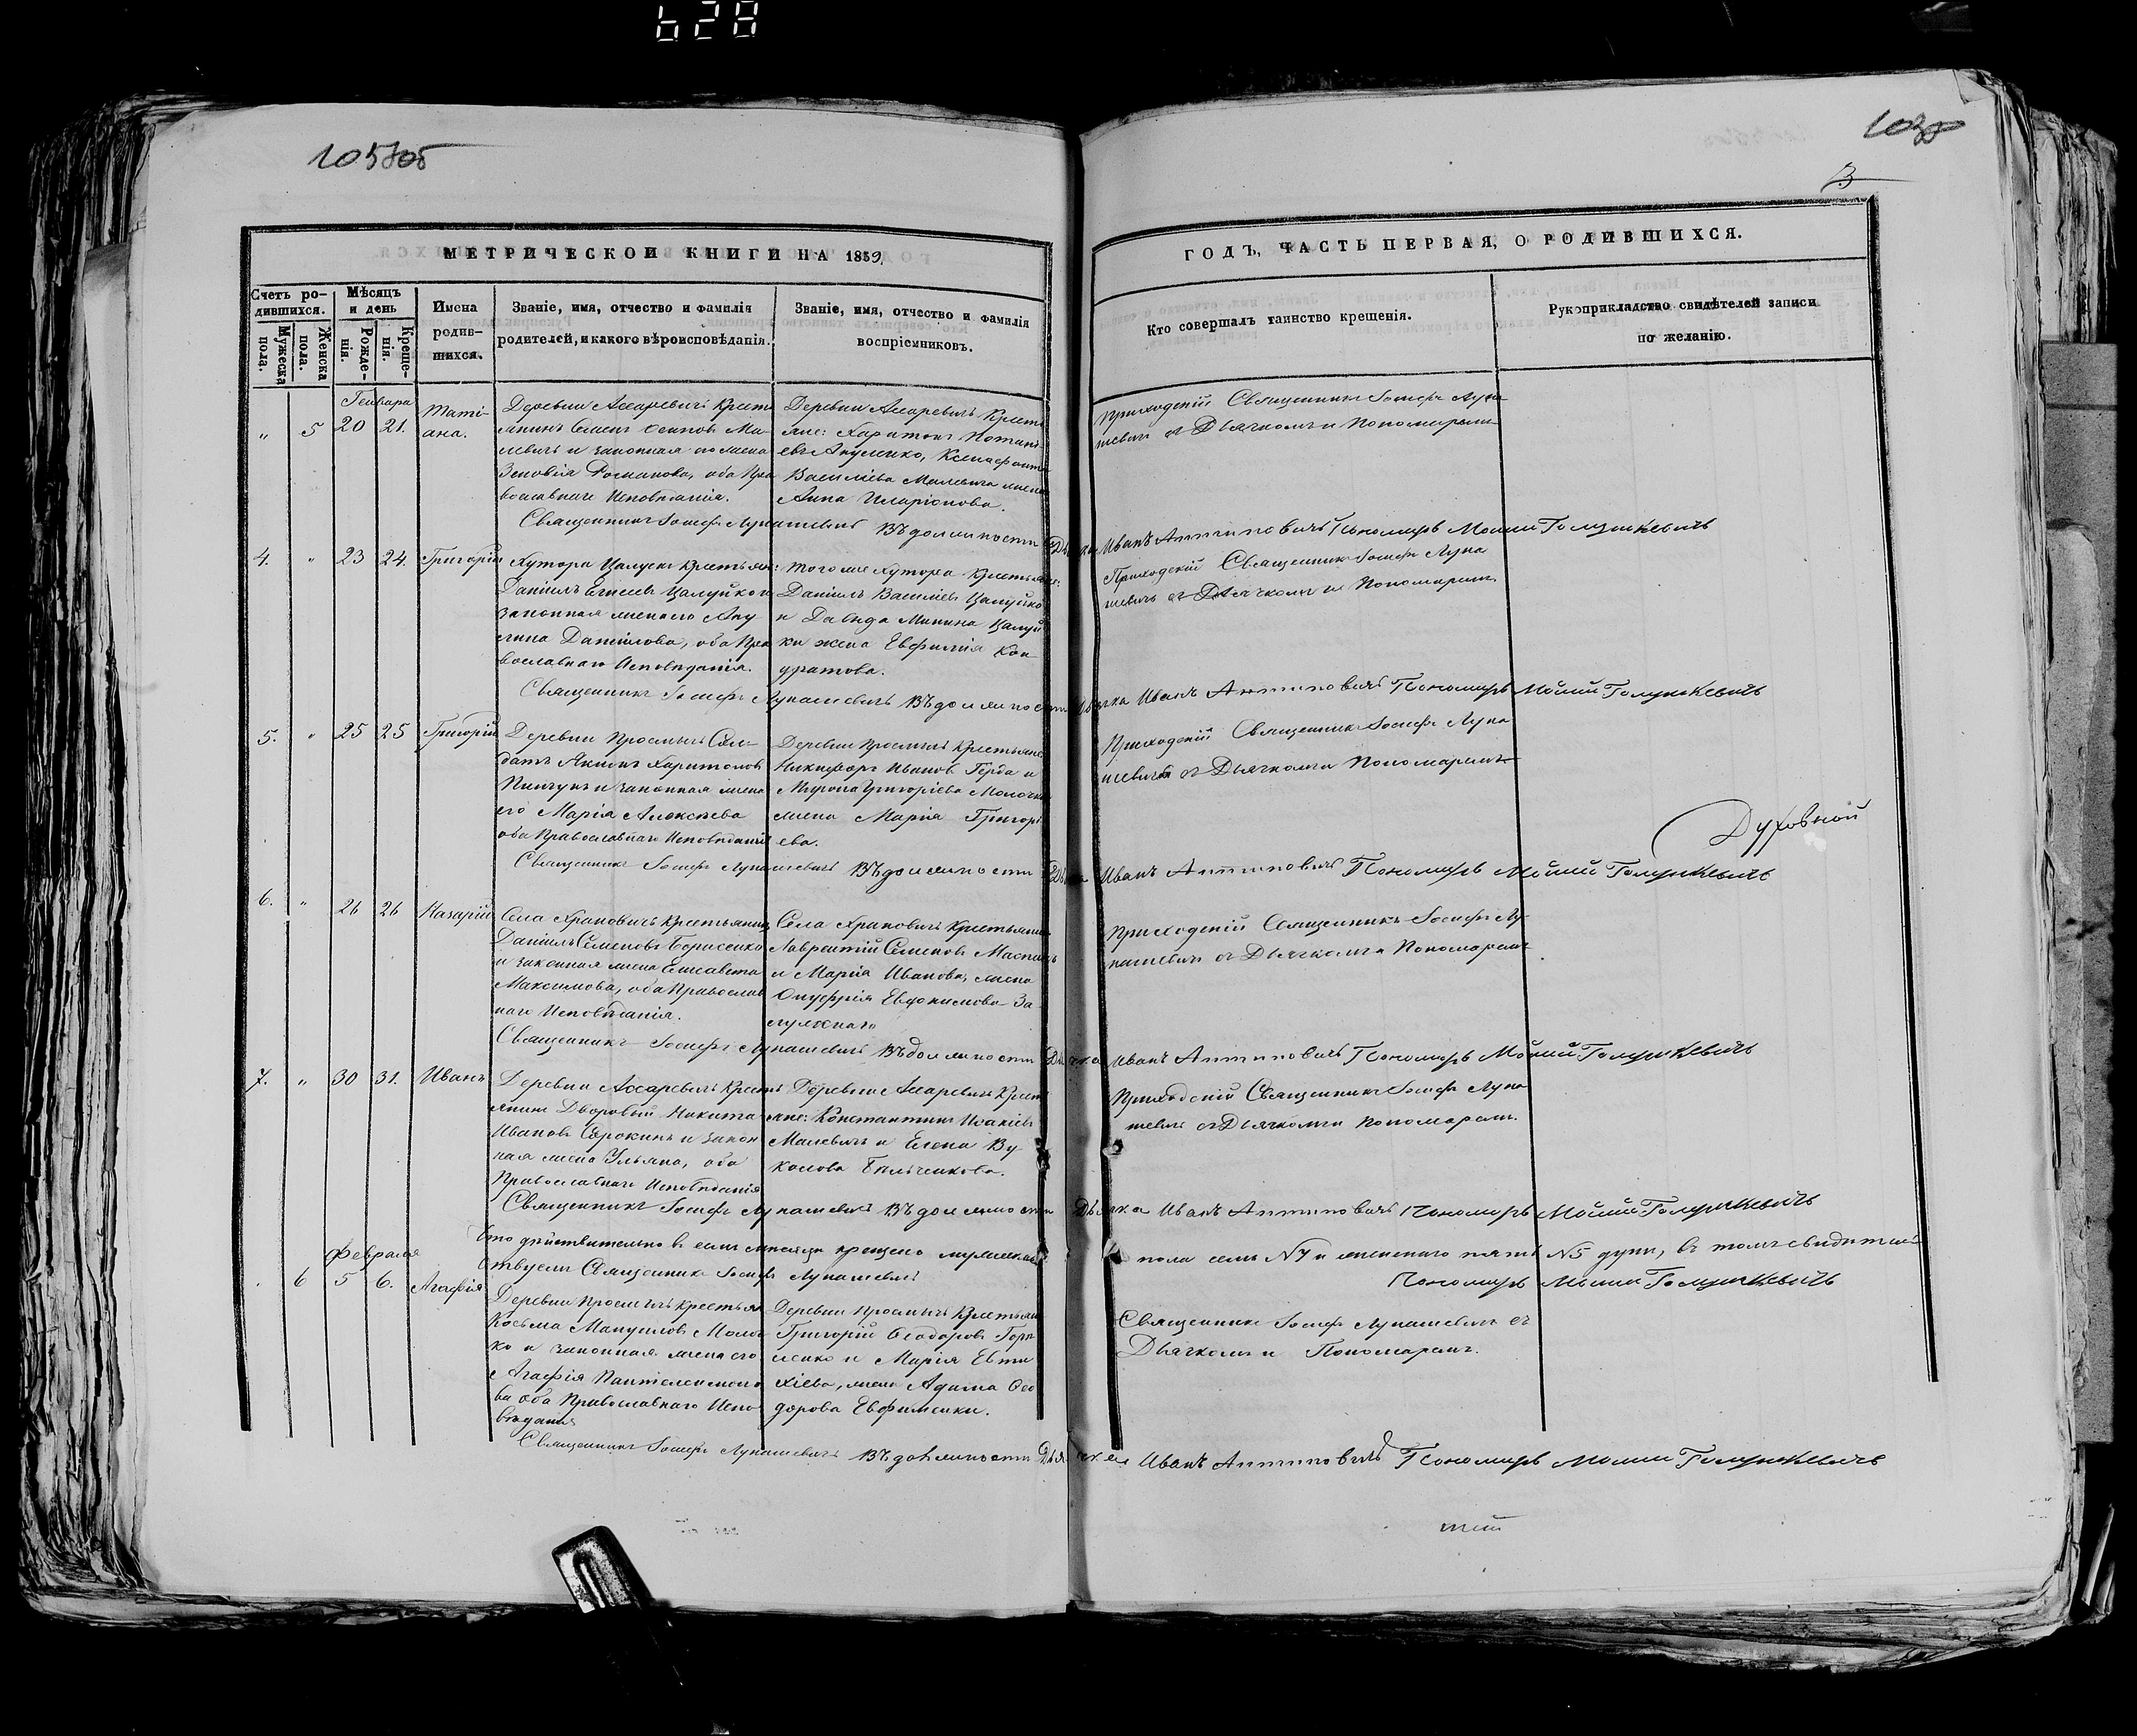 628
105
103
3
МЕТРИЧЕСКОЙ КНИГИ НА 1859
ГОДЪ, ЧАСТЬ ПЕРВАЯ, О РОДИВШИХСЯ.
Счетъ родившихся.
Мужеска пола.
Женска пола.
Мѣсяцъ и день
Рожденія.
Крещенія.
Имена родившихся.
Званіе, имя, отчество и фамилія
родителей, и какого вѣроисповѣданія.
Званіе, имя, отчество и фамилія
воспріемниковъ.
Кто совершалъ таинство крещенія.
Рукоприкладство свидѣтелей записи
по желанію.
Генваря
" 5 20 21. Таті-
ана.
Деревни Крестъ
янинъ Семенъ Осиповъ Ма-
левичъ и законная его жена
Зеновія Романова, оба Пра
вославнаго Исповѣданія.
Деревни Крестъ
яне: Харитонъ Потапъ
евъ Акуленко, Ксенофонта
Василіева Малевича жена
Анна Иларіонова.
Приходскій Священникъ Іосифъ Лука
шевичъ съ Дьячкомъ и Пономаремъ
Священникъ Іосифъ Лукашевичъ Въ должности Дьячка Иванъ Антиповичъ Пономарь Голушкевичъ
4. " 23 24. Григорій
Хутора Цалуекъ Крестьян:
Даніилъ Цалуйко и
законная жена его Аку
лина Даніилова, оба Пра
вославнаго Исповѣданія.
того же хутора Крестьяне:
Даніилъ Василіевъ Цалуйко
и Давида Минина Цалуй
ки жена Евфимія Кон
дратова.
Приходскій Священникъ Іосифъ Лука
шевичъ съ Дьячкомъ и Пономаремъ
Священникъ Іосифъ Лукашевичъ Въ должности Дьячка Иванъ Антиповичъ Пономарь Голушкевичъ
5. " 25 25 Григорій
Деревни Просмычъ Сол-
датъ Харитоновъ
Пинчукъ и законная жена
его Марія Алексѣева
оба Православнаго Исповѣданія
Деревни Просмычъ Крестьяне
Никифоръ Ивановъ Герда и
Мирона Григоріева Молочка
жена Марія Григорі
ева.
Приходскій Священникъ Іосифъ Лука
шевичъ съ Дьячкомъ и Пономаремъ
Духовной
Священникъ Іосифъ Лукашевичъ Въ должности Дьячка Иванъ Антиповичъ Пономарь Голушкевичъ
6. " 26 26 Назарій
Села Храповичъ Крестьянинъ
Даніилъ Семеновъ Борисенко
и законная жена Елисавета
Максимова, оба Православ
наго Исповѣданія.
Села Храповичъ Крестьянинъ
Лаврентій Семеновъ
и Марія Иванова, жена
Онуфрія Евдокимова За
Приходскій Священникъ Іосифъ Лу-
кашевичъ съ Дьячкомъ и Пономаремъ
Священникъ Іосифъ Лукашевичъ Въ должности Дьячка Иванъ Антиповичъ Пономарь Голушкевичъ
7. " 30 31. Иванъ
Деревни Крестъ
янинъ Дворовый Никита
Ивановъ Сорокинъ и закон
ная жена Ульяна, оба
Православнаго Исповѣданія
Деревни Крестъ
яне: Константинъ Исакіевъ
Малевичъ и Елена Ву
колова
Приходскій Священникъ Іосифъ Лука
шевичъ съ Дьячкомъ и Пономаремъ.
Священникъ Іосифъ Лукашевичъ Въ должности Дьячка Иванъ Антиповичъ Пономарь Голушкевичъ
Что дѣйствительно въ семъ мѣсяцѣ крещено мужескаго пола семь №7 и женскаго пять №5 душъ, въ томъ свидѣтель
ствуемъ Священникъ Іосифъ Лукашевичъ Пономарь Голушкевичъ
Февраля
6 5 6. Агафія
Деревни Просмычъ Крестьян
Косьма Мануиловъ Молоч
ко и законная жена его
Агафія Пантелеимоно
ва оба Православнаго Испо
вѣданія
Деревни Просмычъ Крестьян
Григорій Ѳеодоровъ
и Марія Евти
хіева, жена Адама Ѳео
дорова Евфименки.
Священникъ Іосифъ Лукашевичъ съ
Дьячкомъ и Пономаремъ.
Священникъ Іосифъ Лукашевичъ Въ должности Дьячка Иванъ Антиповичъ Пономарь Голушкевичъ